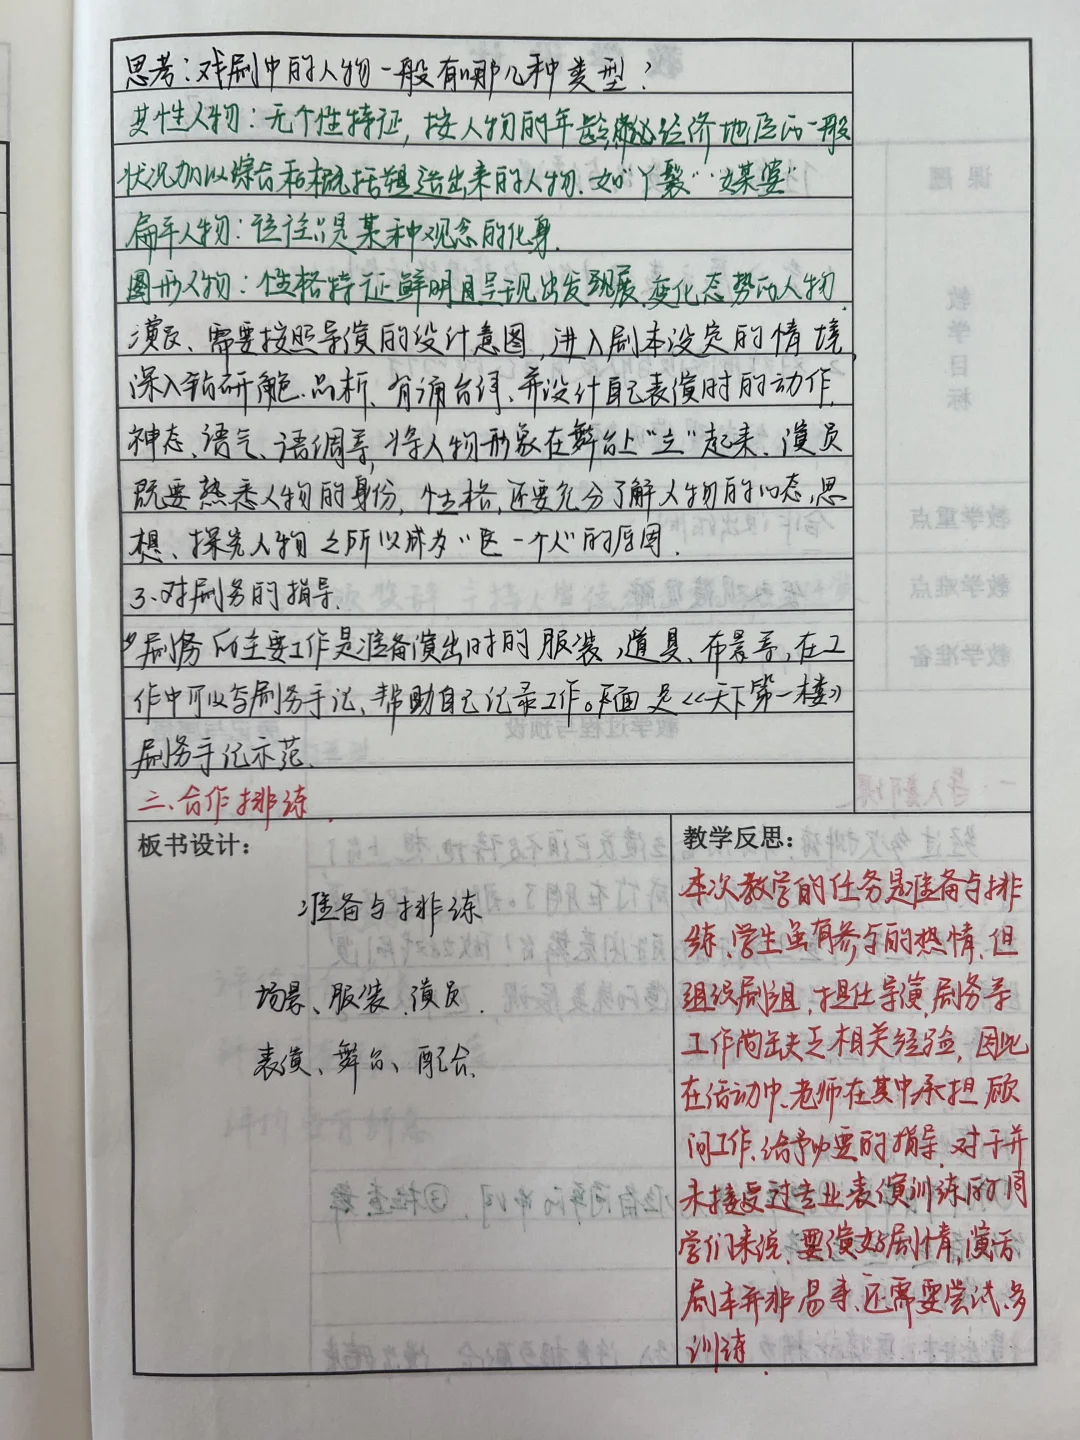 思考:戏剧中的人物一般有哪几种类型?
共性人物:无个性特征,按人物的年龄 经济地位的一般
状况加以综合和概括塑造出来的人物.如"丫鬟""媒婆"
扁平人物:往往只是某种观念的化身.
圆形人物:性格特征鲜明且呈现出发展变化态势的人物.
演员、需要按照导演的设计意图,进入剧本设定的情境,
深入钻研角色.品析、背诵台词、并设计自己表演时的动作,
神态、语气、语调等,将人物形象在舞台上"立"起来、演员
既要熟悉人物的身份,性格,还要充分了解人物的心态,思
想、探究人物之所以成为"这一个人"的原因.
3.对剧务的指导.
剧务的主要工作是准备演出时的服装,道具、布景等,在工
作中可以写剧务手记、帮助自己记录工作。下面是《天下第一楼》
剧务手记示范.
三、合作排练.
板书设计:
准备与排练
场景、服装、演员.
表演、舞台、配合.
教学反思:
本次教学的任务是准备与排
练、学生虽有参与的热情,但
组织剧组,担任导演,剧务等
工作尚缺乏相关经验,因此
在活动中、老师在其中承担顾
问工作,给予必要的指导.对于并
未接受过专业表演训练的同
学们来说,要演好剧情,演活
剧本并非易事,还需要尝试、多
训练.